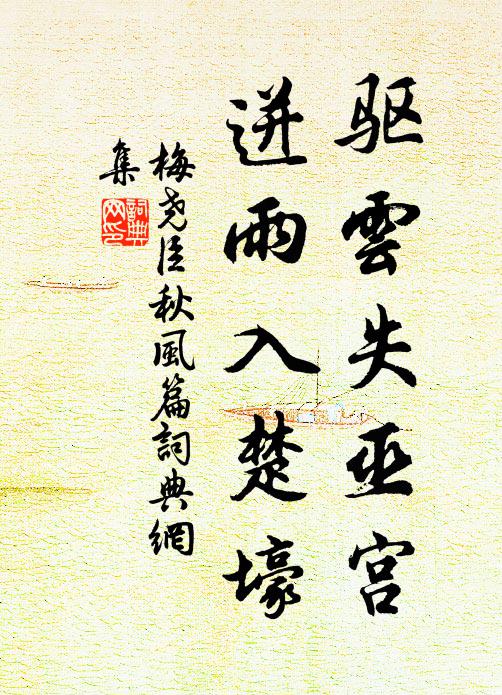 驱雲失巫宫
迸雨入楚壕
梅尧臣秋風篇詞典網
集
詞典网印